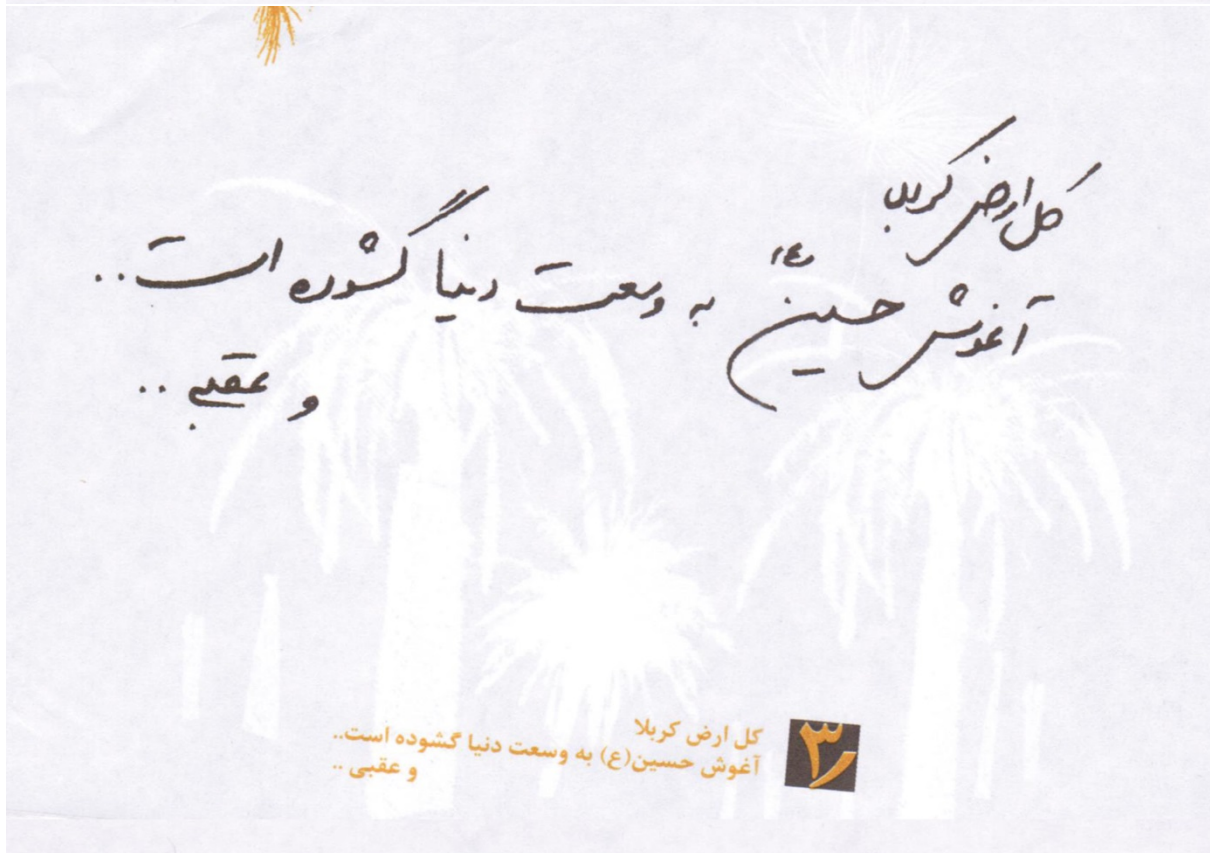 کل ارض کربلا
آغوش حسین (ع) به وسعت دنیا گشوده است..
و عقبی ..
کل ارض کربلا
آغوش حسین(ع) به وسعت دنیا گشوده است..
و عقبی ..
۳